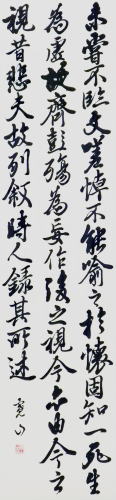 未嘗不臨文嗟悼不能喻之於懷固知一死生
為虛誕齊彭殤為妄作後之視今亦由今之
視昔悲夫故列敘時人錄其所述